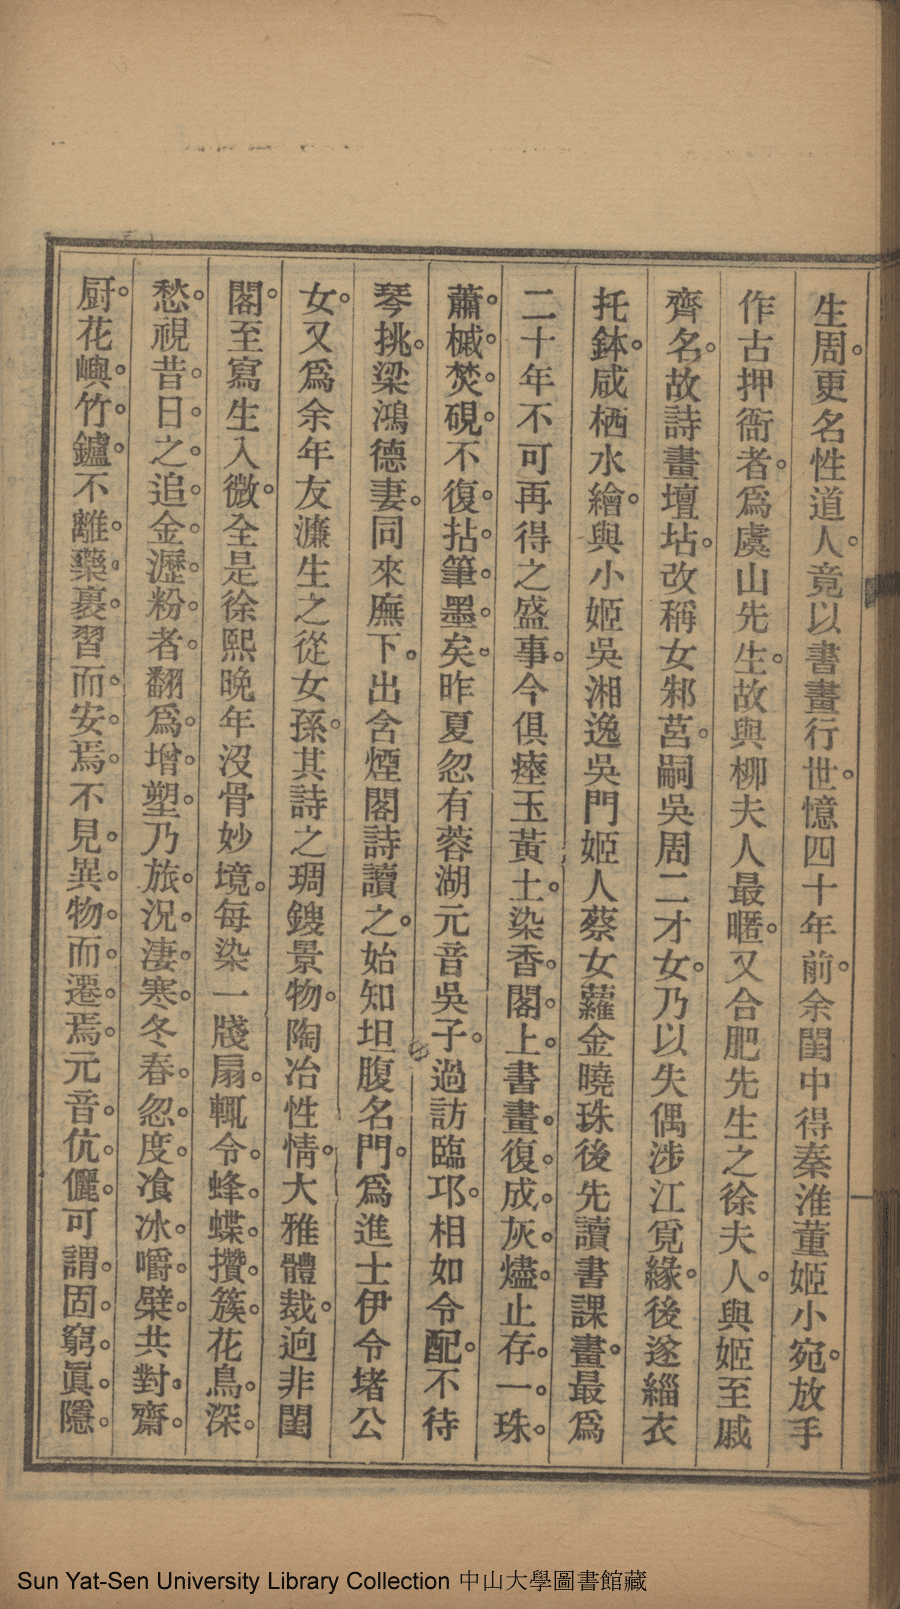 生周。更名性道人。竟以書畫行世。憶四十年前。余閨中得秦淮董姬小宛。放手
作古押衙者。爲虞山先生。故與柳夫人最暱。又合肥先生之徐夫人。與姬至戚
齊名。故詩畫壇坫。改稱女邾莒。嗣吳周二才女。乃以失偶涉江覓緣。後遂緇衣
托鉢。咸栖水繪。與小姬吳湘逸吳門姬人蔡女蘿金曉珠後先讀書課畫。最爲
二十年不可再得之盛事。今俱瘞玉黃土。染香。閣。上。書畫。復。成。灰。燼。止存。一。珠。
蕭。槭。焚。硯。不復。拈。筆。墨。矣。昨夏忽有蓉湖元音吳子。過訪臨邛。相如令配。不待
琴挑。梁鴻德妻。同來廡下。出含煙閣詩讀之。始知坦腹名門。爲進士伊令堵公
女。又爲余年友濂生之從女孫。其詩之琱鎪景物。陶冶性情。大雅體裁。逈非閨
閣。至寫生入微。全是徐熙晚年沒骨妙境。每染一牋扇。輒令。蜂。蝶。攢。簇。花鳥。深。
愁。視昔。日。之。追。金。瀝。粉。者。翻爲。增。塑。乃旅。況。凄。寒。冬春。忽。度。飡冰。嚼。檗。共對。齋。
厨。花嶼。竹。鑪。不離。藥。裹。習而。安。焉。不見。異。物。而。遷。焉。元音。伉。儷。可謂。固。窮。眞。隱。
Sun Yat-Sen University Library Collection 中山大學圖書館藏